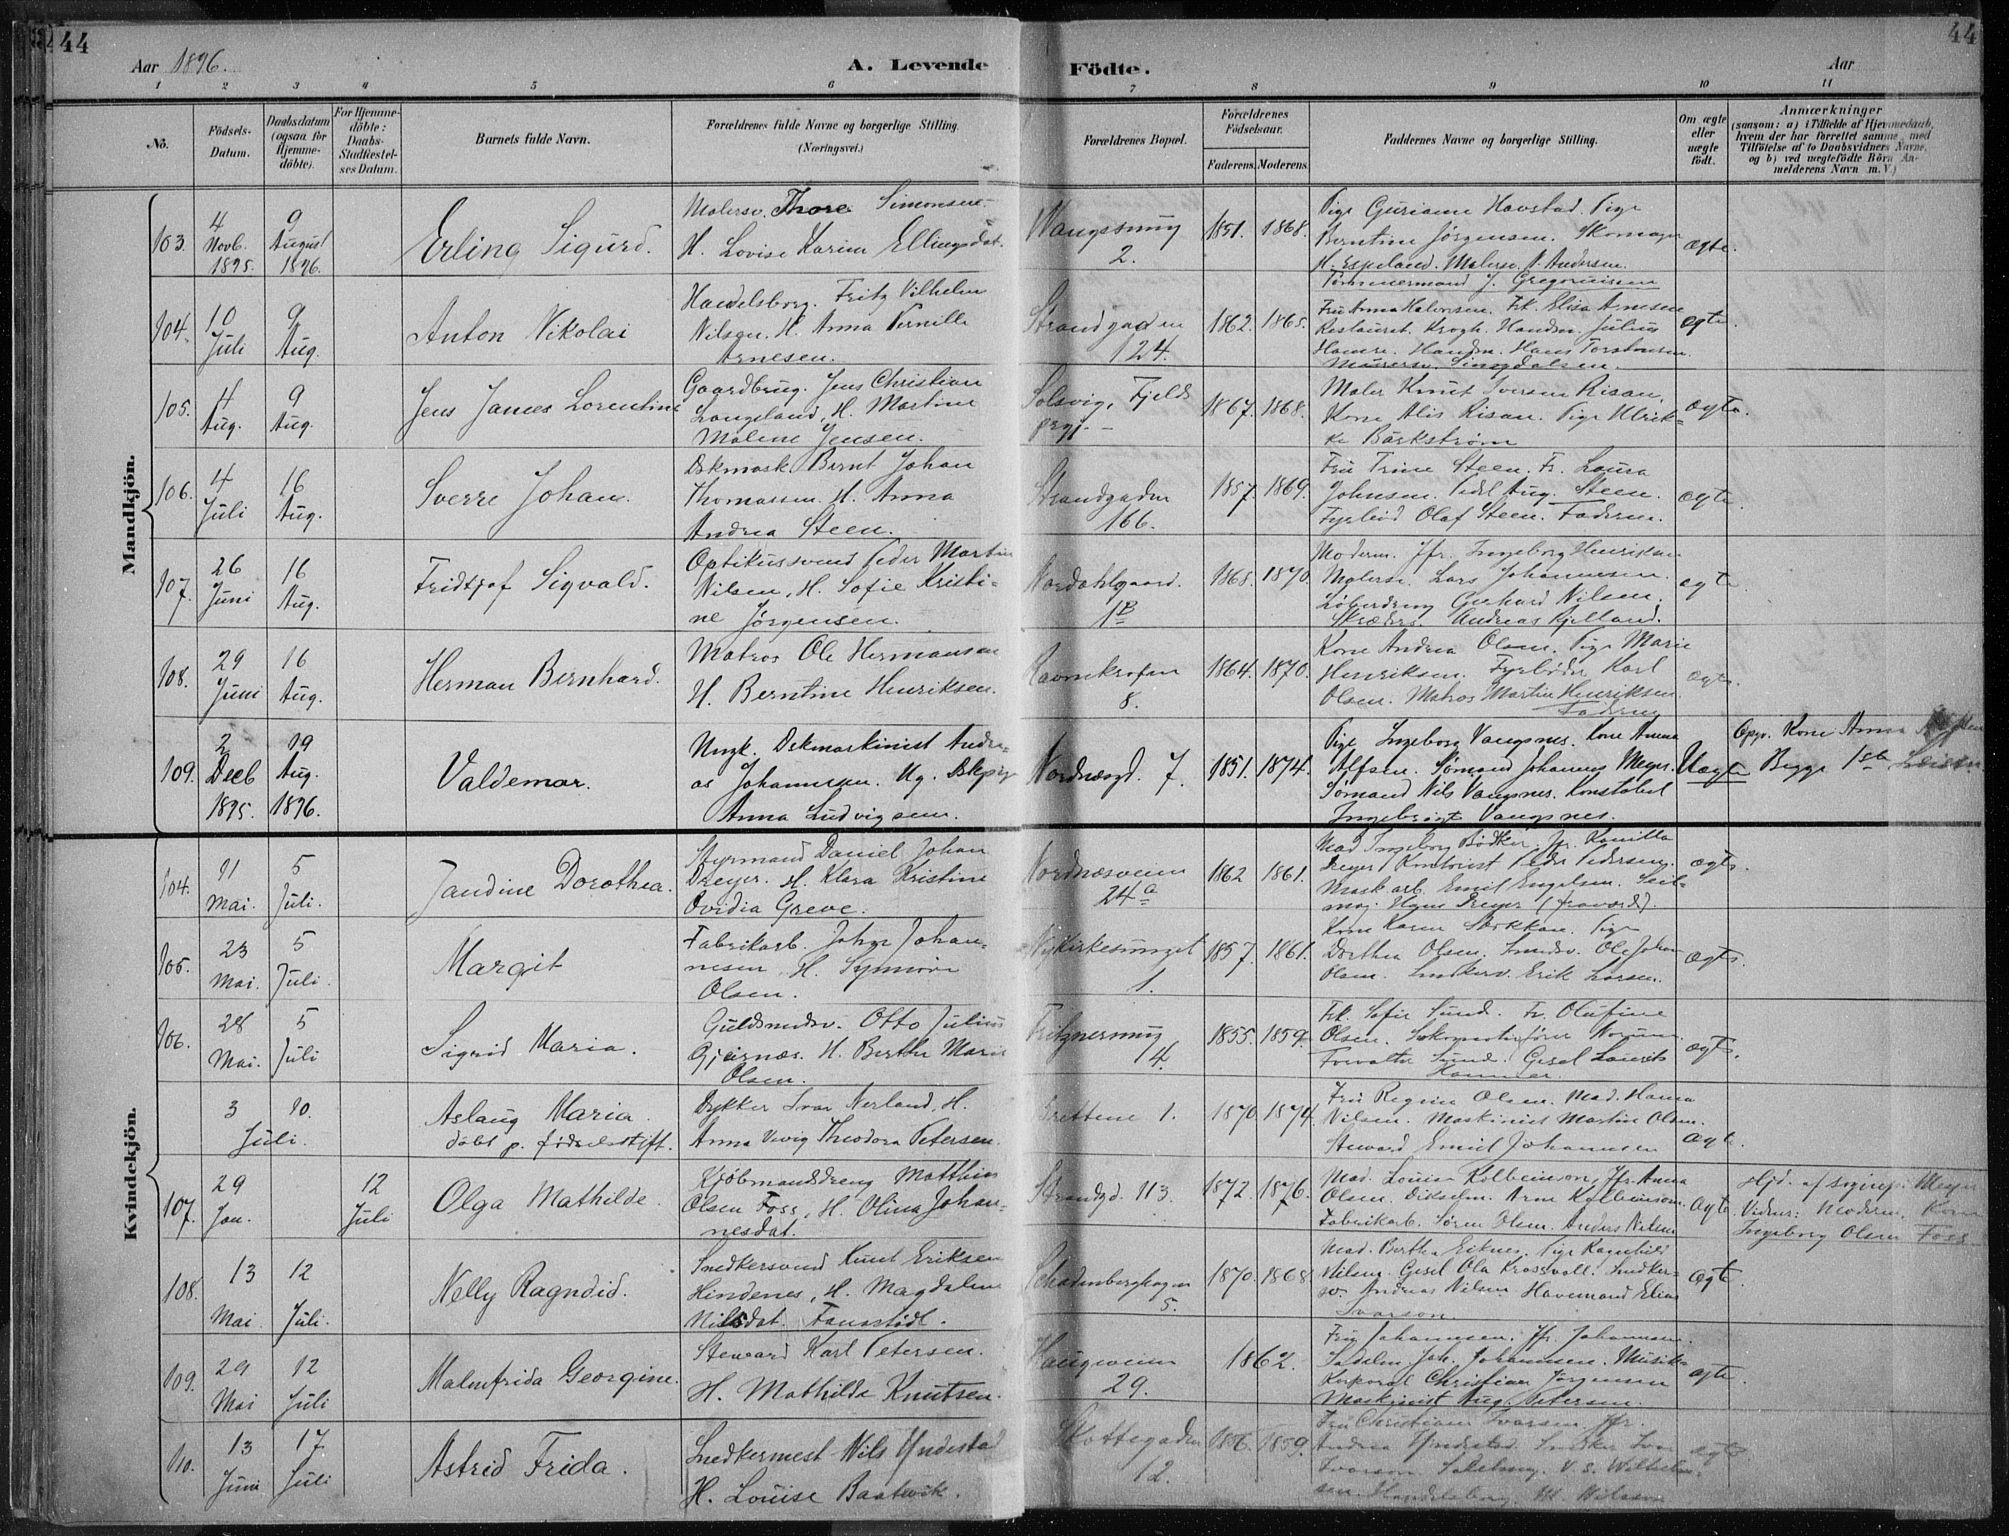 44
Aar 1896.
A. Levende Födte.
Aar
44
1 2 3 4 5 6 7 8 9 10 11
No.
Födsels-Datum.
Daabsdatum (ogsaa for Hjemme-döbte).
For Hjemme-döbte: Daabs-Stadfæstel-ses Datum.
Barnets fulde Navn.
Forældrenes fulde Navne og borgerlige Stilling. (Næringsvei.)
Forældrenes Bopæl.
Forældrenes Födselsaar.
Faderens. Moderens.
Faddernes Navne og borgerlige Stilling.
Om ægte eller uægte födt.
Anmærkninger (saasom: a) i Tilfælde af Hjemmedaab, hvem der har forrettet samme, med Tilföielse af to Daabsvidners Navne, og b) ved uægtefödte Börn An-melderens Navn m. V.)
Mandkjön.
103. 4 Novb. 1895. 9 August 1896. Erling Sigurd.
Malersv. Thore Simonsen
H. Lovise Karine Ellingsdat.
Vaagssmug 2. 1851. 1868.
Pige Guriane Havstad. Pige
Berntine Jörgensen. Skomager
H. Espeland. Malersv. A. Andersen.
Tömmermand J. Gregoriussen
ægte.
104. 10 Juli 9 Aug. Anton Nikolai
Handelsborg. Fritz Vilhelm
Nilsen. H. Anna Pernille
Arnesen.
Strandgaden 124. 1862. 1865.
Fru Anna Halvorsen. Frk. Elisa Arnesen
Restaurat. Krogh. Handm. Julius
Hamre. Handm. Hans Torstensen.
Murersv. Singdalsen.
ægte.
105. 4 Aug. 9 Aug. Jens James Lorentius
Gaardbrug. Jens Christian
Langeland, H. Martine
Malene Jensen.
Solsvig, Fjelds prgj. 1867. 1868.
Maler Knut Iversen Risan,
Kone Alis Risan. Pige Ulrik-
ke Bäckström
ægte.
106. 4 Juli 16 Aug. Sverre Johan.
Dskmask. Bernt Johan
Thomassen. H. Anna
Andrea Steen.
Strandgaden 166. 1857. 1869.
Fru Trine Steen. Fr. Laura
Johnsen. Pedel Aug. Steen.
Fyrböd Olaf Steen. Faderen.
ægte
107. 26 Juni 16 Aug. Fridtjof Sigvald.
Optikussvend Peder Martin
Nilsen, H. Sofie Kristi-
ne Jörgensen.
Nordahlsgaard. 1B 1868. 1870.
Moderen. Jfr. Ingeborg Henriksen
Malersv. Lars Johannesen.
Löberdreng Gerhard Nilsen.
Skræders. Andreas Kjelland.
ægte
108. 29 Juni 16 Aug. Herman Bernhard.
Matros Ole Hermansen
H. Berntine Henriksen.
Ravnekrofen 8. 1864. 1870.
Kone Andrea Olsen. Pige Marie
Henriksen. Fyrböder Karl
Olsen. Matros Martin Henriksen.
Faderen
ægte.
109. 2 Decb 1895. 19 Aug. 1896. Valdemar.
Ungk. Dskmaskinist Andre-
as Johannesen. Ug. Dskpige
Anna Ludvigsen.
Nordnæsgd. 7. 1851. 1874.
Pige Ingeborg Vangsnes. Kone Anna
Alfsen. Sömand Johannes Meyer.
Sömand Nils Vangsnes. Konstabel
Ingebrigt Vangsnes.
Uægte
Opg. Kone Anna Alfsen
Begge 1ste Leiem.
Kvindekjön.
104. 11 Mai. 5 Juli. Jandine Dorothea.
Styrmand Daniel Johan
Dreyer. H. Klara Kristine
Ovidia Greve.
Nordnæsveien 24a 1862 1861.
Mad Ingeborg Bödker. Jfr. Kamilla
Dreyer. Kontorist Peder Pedersen.
Maskarb. Emil Engelsen. Seil-
mag. Dreyer (fraværd.)
ægte.
105. 23 Mai. 5 Juli. Margit
Fabrikarb. Johan Johan-
nesen, H. Synnöve
Olsen.
Nykirkesmuget 1. 1857. 1861.
Kone Karen Stokkan. Pige
Dorthea Olsen. Smedsv. Ole Johan
Olsen. Snedkersv. Erik Larsen.
ægte.
106. 28 Mai. 5 Juli Sigrid Maria.
Guldsmedsv. Otto Julius
Gjernæs. H. Berthe Marie
Olsen.
Fritznersmug 14. 1855. 1859.
Frk. Sofie Sund. Fr. Olufine
Olsen.
Forvalter Sund. Gesel Laurits
Hammer.
ægte.
3 10. Juli. Aslaug Maria.
döbt p. födselsstift.
Dykker Ivar Nerland, H.
Anna Vivig Theodora Petersen.
1. 1870 1874.
Fru Regine Olsen. Mad. Hanna
Nilsen. Maskinist Martin Olsen.
Steward Emil Johannesen
ægte.
107. 29 Jan. 12 Juli Olga Mathilde.
Kjöbmandsdreng Matthias
Olsen Foss, H. Olina Johan-
nesdat.
Strandgd. 113. 1872. 1876.
Mad. Louise Kolbeinson, Jfr. Anna
Olsen. Arne Kolbeinson.
Fabrikarb. Sören Olsen. Anders Nilsen
ægte.
Hjd. af Sognepr. Meyer
Vidner: Moderen, Kone
Ingeborg Olsen Foss
108. 13 Mai. 12 Juli. Nelly Ragndid.
Snedkersvend Knut Eriksen
Hindenes, H. Magdalene
Nilsdat. Fanastöl.
Skudenberghagen 5. 1870. 1868.
Mad. Bertha Eiknes. Pige Ragnhild
Nilsen. Gesel Ola Krossvoll. Snedker-
sv. Andreas Nilsen Havemand Elias
Ivarson
ægte.
109. 29 Mai 12 Juli Malmfrida Georgine.
Steward Karl Petersen.
H. Mathilda Knutsen.
Haugeveien 29. 1862.
Fru Johannesen. Jfr. Johannesen.
Sadelm. Joh. Johannesen. Musik-
korporal Christian Jörgensen
Maskinist Aug. Petersen.
ægte.
110. 13 Juni 17 Juli Astrid Frida.
Snedkermest. Nils Yndestad
H. Louise Baatevik.
Skottegaden 12. 1856. 1859.
Fru Christiane Ivarsen. Jfr.
Andrea Yndestad. Snedker Ivar
Ivarson V. S. Wilhelm-
sen. Handelsborg. M. Nilsson
ægte